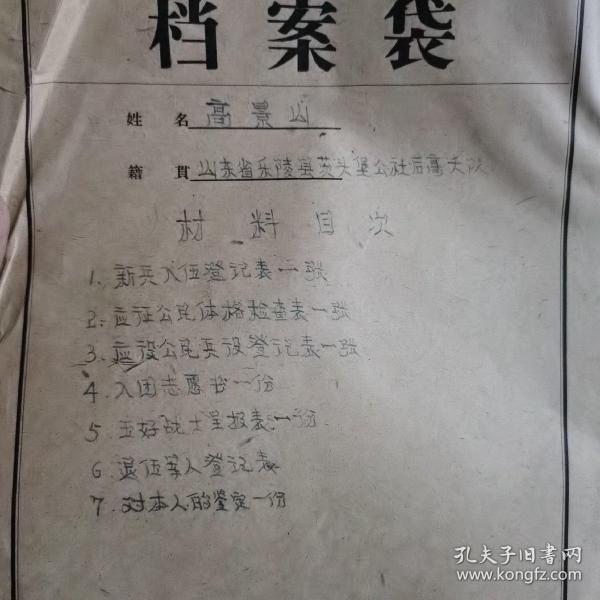 档案袋
姓名 高景山
籍貫 山东省乐陵县茨头堡公社后高大队
材料目次
1. 新兵入伍登记表一张
2. 应征公民体格检查表一张
3. 应役公民兵役登记表一张
4. 入团志愿书一份
5. 五好战士呈报表一份
6. 退伍军人登记表
7. 对本人的鉴定一份
孔夫子旧书网
www.kongfz.com